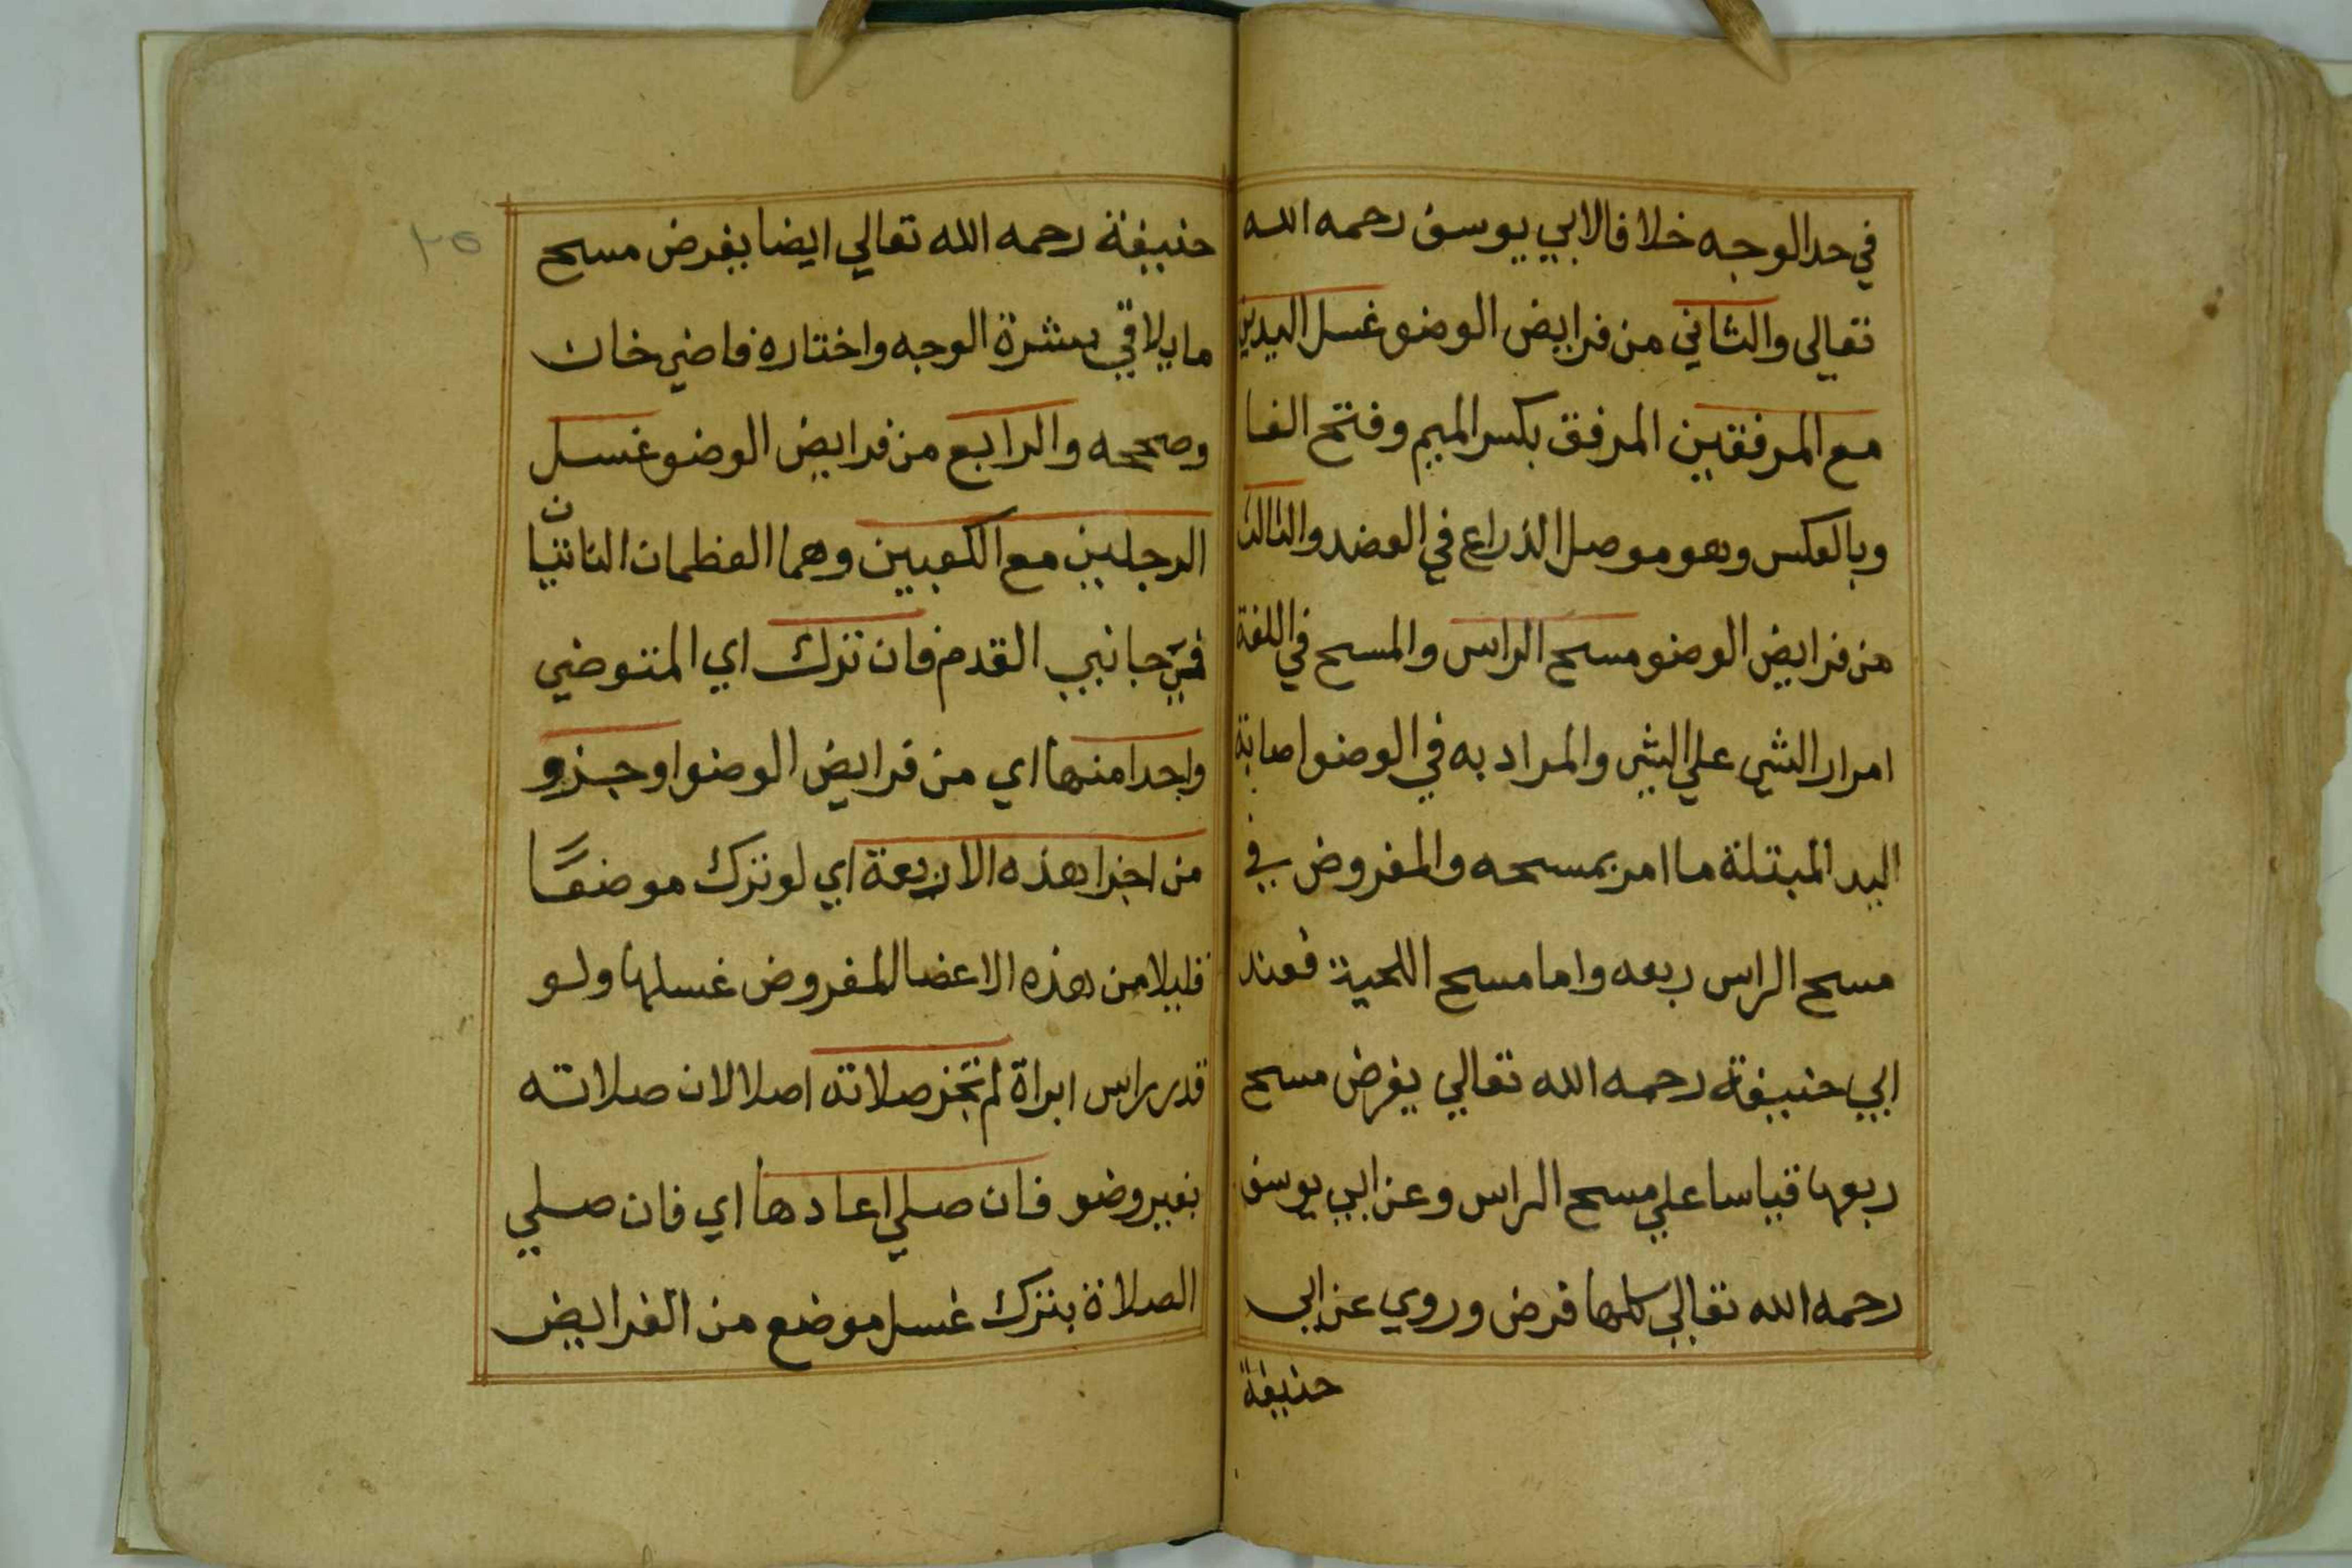 في حد الوجه خلافا لابي يوسف رحمه الله
تعالى والثاني من فرايض الوضو غسل اليدين
مع المرفقين المرفق بكسر الميم وفتح الفا
وبالعكس وهو موصل الذراع في العضد والثالث
من فرايض الوضو مسح الراس والمسح في اللغة
امرار الشي علي الشي والمراد به في الوضو اصابة
اليد المبتلة ما امر بمسحه والمفروض في
مسح الراس ربعه واما مسح اللحية فعند
ابي حنيفة رحمه الله تعالي يفرض مسح
ربعها قياسا علي مسح الراس وعن ابي يوسف
رحمه الله تعالي كلها فرض وروي عن ابي
حنيفة
٢٥
حنيفة رحمه الله تعالي ايضا يفرض مسح
ما يلاقي بشرة الوجه واختاره قاضي خان
وصححه والرابع من فرايض الوضو غسل
الرجلين مع الكعبين وهما العظمان الناتيان
في جانبي القدم فان ترك اي المتوضي
واحدا منها اي من فرايض الوضو او جزو
من اجزا هذه الاربعة اي لو ترك موضعًا
قليلا من هذه الاعضا المفروض غسلها ولو
قدر راس ابراة لم تجز صلاته اصلا لان صلاته
بغير وضو فان صلي اعادها اي فان صلي
الصلاة بترك غسل موضع من الفرايض